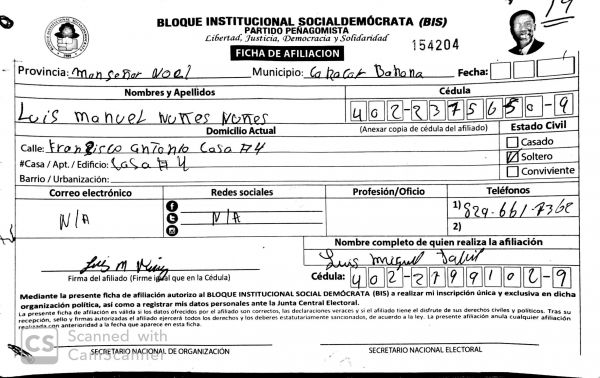 BLOQUE INSTITUCIONAL SOCIALDEMÓCRATA (BIS)
PARTIDO PEÑAGOMISTA
Libertad, Justicia, Democracia y Solidaridad
FICHA DE AFILIACION
154204
Provincia: Monseñor NOEL Municipio: Fecha:
Nombres y Apellidos Cédula
Luis Manuel Nuñes Nuñes 402-2375650-9
Domicilio Actual (Anexar copia de cédula del afiliado) Estado Civil
Calle: Francisco Antonio Casa #4 Casado
#Casa / Apt. / Edificio: Casa #4 Soltero
Barrio / Urbanización: Conviviente
Correo electrónico Redes sociales Profesión/Oficio Teléfonos
N/A N/A 1) 829-661-7362
2)
Nombre completo de quien realiza la afiliación
Luis M Luis Miguel
Firma del afiliado (Firme igual que en la Cédula) Cédula: 402-2799102-9
Mediante la presente ficha de afiliación autorizo al BLOQUE INSTITUCIONAL SOCIAL DEMÓCRATA (BIS) a realizar mi inscripción única y exclusiva en dicha
organización política, así como a registrar mis datos personales ante la Junta Central Electoral.
La presente ficha de afiliación es válida si los datos ofrecidos por el afiliado son correctos, las declaraciones veraces y si el afiliado tiene el disfrute de sus derechos civiles y políticos. Tras su
recepción, sello y firmas autorizadas el afiliado ejercerá todos los derechos y los deberes estatutariamente sancionados, de acuerdo a la ley. La presente afiliación anula cualquier afiliación
realizada con anterioridad a la fecha que aparece en esta ficha.
CS Scanned with
CamScanner
SECRETARIO NACIONAL DE ORGANIZACIÓN SECRETARIO NACIONAL ELECTORAL